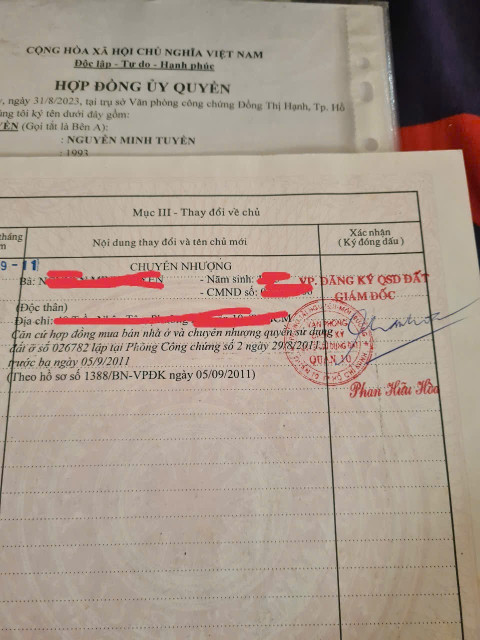 CỘNG HÒA XÃ HỘI CHỦ NGHĨA VIỆT NAM
Độc lập - Tự do - Hạnh phúc
HỢP ĐỒNG ỦY QUYỀN
, ngày 31/8/2023, tại trụ sở Văn phòng công chứng Đồng Thị Hạnh, Tp. Hồ
tôi ký tên dưới đây gồm:
(Gọi tắt là Bên A):
: NGUYỄN MINH TUYÊN
: 1993
Mục III - Thay đổi về chủ
tháng
Nội dung thay đổi và tên chủ mới
Xác nhận
(Ký đóng dấu)
9 - 11
CHUYỂN NHƯỢNG
Bà:
- Năm sinh:
- CMND số:
(Độc thân)
Địa chỉ:
Căn cứ hợp đồng mua bán nhà ở và chuyển nhượng quyền sử dụng
đất ở số 026782 lập tại Phòng Công chứng số 2 ngày 29/8/2011,
trước bạ ngày 05/9/2011
(Theo hồ sơ số 1388/BN-VPĐK ngày 05/09/2011)
VP. ĐĂNG KÝ QSD ĐẤT
GIÁM ĐỐC
VĂN PHÒNG
ĐĂNG KÝ
QUẬN 10
Phan Hữu Hòa